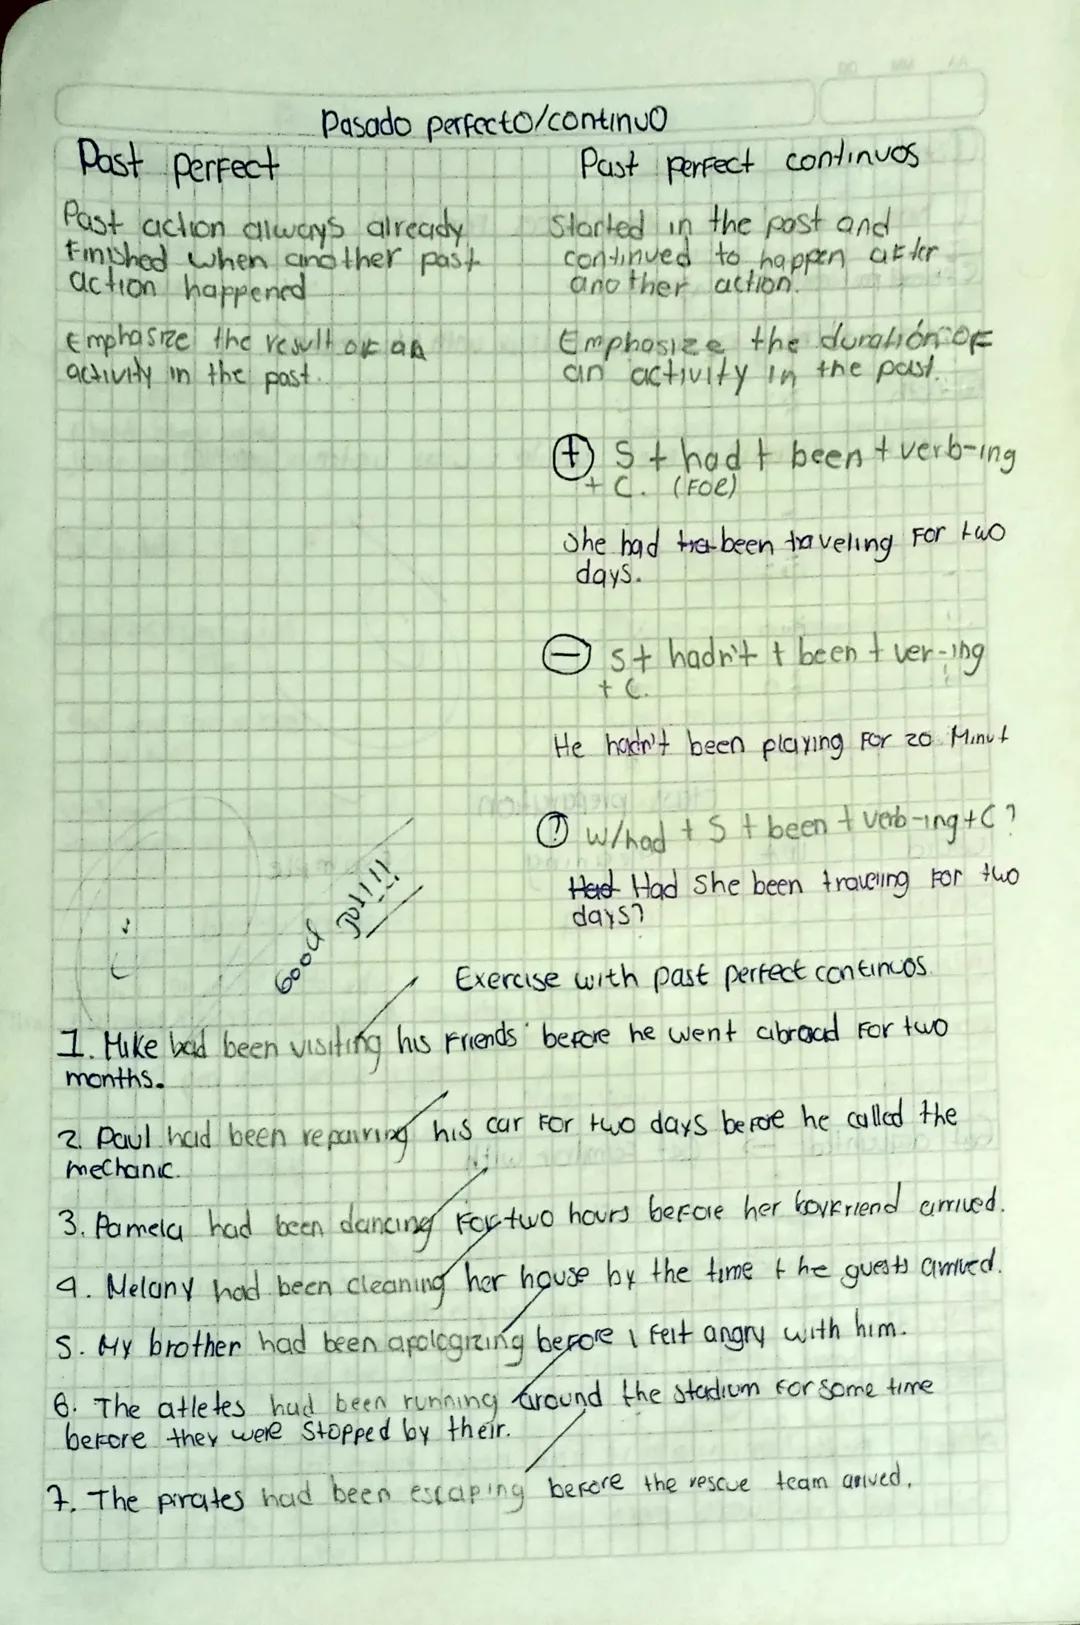 Pasado perfecto/continuo
Past perfect
Past action always already
finished when another past
action happened
Emphasize the result of an
activity in the past.
Past perfect continuos
Started in the past and
continued to happen after
another action.
Emphasize the duratión of
an activity in the past.
(+) S + had + been + verb-ing
+ C. (FOE)
She had been taveling For two
days.
(-) S + hadn't + been + ver-ing
+ C.
He hadn't been playing For 20 Minut
(?) W/had + S + been + verb-ing + C?
Had Had She been traveling For two
days?
Good
Job!!!!
Exercise with past perfect continuos.
1. Mike had been visiting his Friends before he went abroad For two
months.
2. Paul had been repairing his car For two days before he called the
mechanic.
3. Pamela had been dancing For two hours before her boyfriend arrived.
4. Melany had been cleaning her house by the time the guests arrived.
5. My brother had been apologizing before I felt angry with him.
6. The atletes had been running around the stadium For some time
before they were stopped by their.
7. The pirates had been escaping before the rescue team arived.